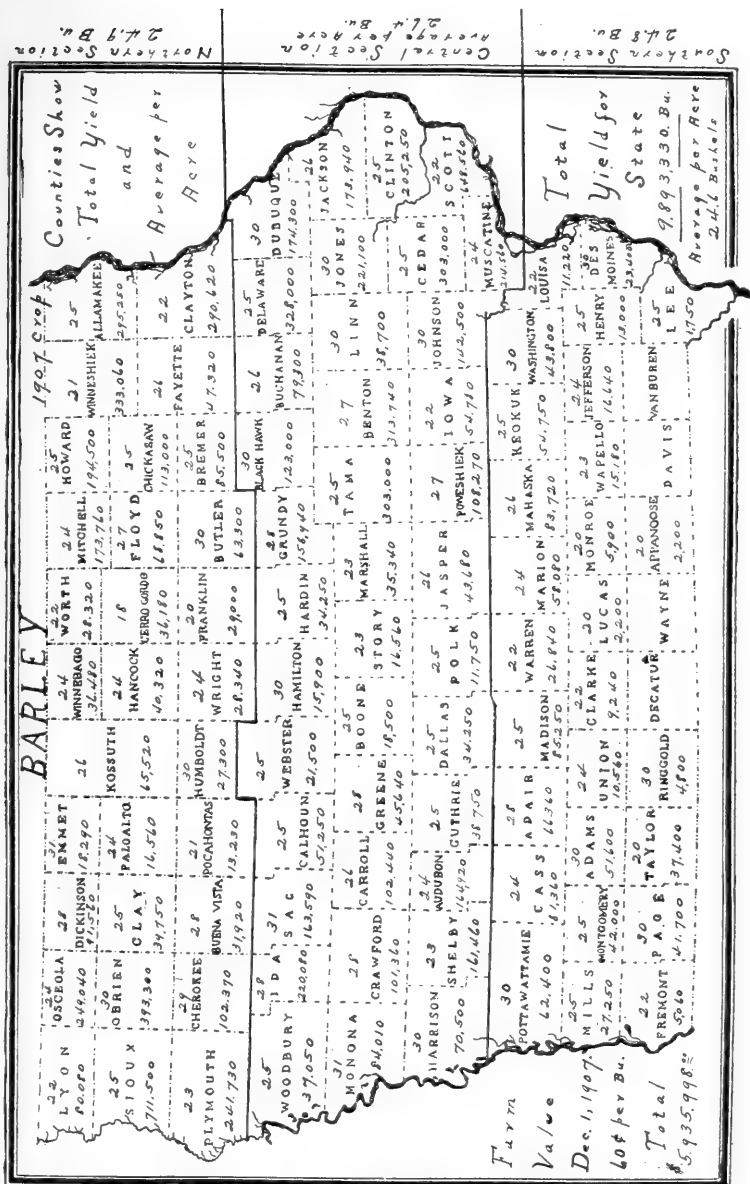 BARLEY
1907 Crop
Counties Show
Total Yield
and
Average per
Acre
Northern Section
24.9 Bu
Central Section
Average per Acre
26.4 Bu.
Southern Section
24.8 Bu.
22
LYON
80.080
24
OSCEOLA
249.040
28
DICKINSON
31
EMMET
18,290
26
KOSSUTH
65,520
24
WINNEBAGO
36,480
22
WORTH
28.320
24
MITCHELL
173,760
25
HOWARD
194,500
21
WINNESHIEK
333.060
25
ALLAMAKEE
295,250
25
SIOUX
711.500
30
OBRIEN
393,300
25
CLAY
39,750
24
PALOALTO
16,560
24
HANCOCK
40,320
18
CERRO GORDO
36,180
27
FLOYD
68,850
25
CHICKASAW
113,000
26
FAYETTE
47.320
22
CLAYTON
290,620
23
PLYMOUTH
241.730
29
CHEROKEE
102.370
28
BUENA VISTA
31,920
21
POCAHONTAS
13,230
30
HUMBOLDT
27.300
24
WRIGHT
28.340
20
FRANKLIN
29,000
30
BUTLER
63,300
25
BREMER
85,500
25
WOODBURY
37.050
28
IDA
220,080
31
SAC
163,590
25
CALHOUN
51,250
25
WEBSTER
21,500
30
HAMILTON
15,900
25
HARDIN
34.250
28
GRUNDY
156,940
30
BLACK HAWK
123,000
26
BUCHANAN
79,300
25
DELAWARE
328,000
30
DUBUQUE
174,300
31
MONONA
84,010
28
CRAWFORD
101,360
26
CARROLL
102,440
28
GREENE
45,640
25
BOONE
18,500
23
STORY
16,560
23
MARSHALL
35,340
25
TAMA
303,000
27
BENTON
313,740
30
LINN
38,700
30
JONES
221,100
26
JACKSON
173,940
30
HARRISON
70,500
23
SHELBY
161,460
24
AUDUBON
164,920
25
GUTHRIE
38,750
25
DALLAS
34.250
25
POLK
11,750
26
JASPER
43,680
27
POWESHIEK
108,270
22
IOWA
54,780
30
JOHNSON
142,500
25
CEDAR
303,000
25
CLINTON
205,250
22
SCOTT
648,560
24
MUSCATINE
214,560
30
POTTAWATTAMIE
62,400
24
CASS
81,360
28
ADAIR
66,360
25
MADISON
85,250
22
WARREN
26,840
24
MARION
58,080
26
MAHASKA
83,720
25
KEOKUK
54,750
30
WASHINGTON
43,800
22
LOUISA
11,220
25
MILLS
27.250
25
MONTGOMERY
42,000
30
ADAMS
51,600
24
UNION
10,560
22
CLARKE
9,240
20
LUCAS
2,200
20
MONROE
5,900
23
WAPELLO
15,180
24
JEFFERSON
16,640
25
HENRY
13,000
30
DES
MOINES
23,400
22
FREMONT
5,060
30
PAGE
41,700
20
TAYLOR
37,400
30
RINGGOLD
4,800
DECATUR
WAYNE
20
APPANOOSE
2,200
DAVIS
VANBUREN
25
LEE
1,750
Farm
Value
Dec. 1, 1907.
60¢ per Bu.
Total
$5,935,998.00
Total
Yield for
State
9,893,330. Bu.
Average per Acre
24.6 Bushels